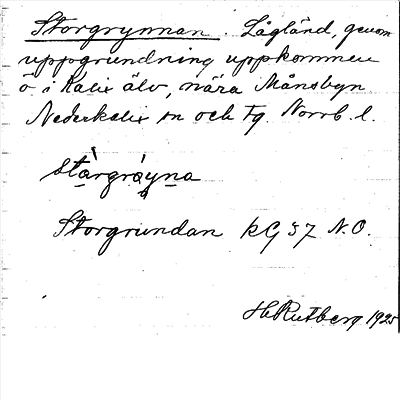 Storgrynnan. Lågländ, genom
uppgrundning uppkommen
ö i Kalix älv, nära Månsbyn.
Nederkalix sn och tg. Norrb. l.
Storgrundan kG 37 N.O.
H Rutberg 1925